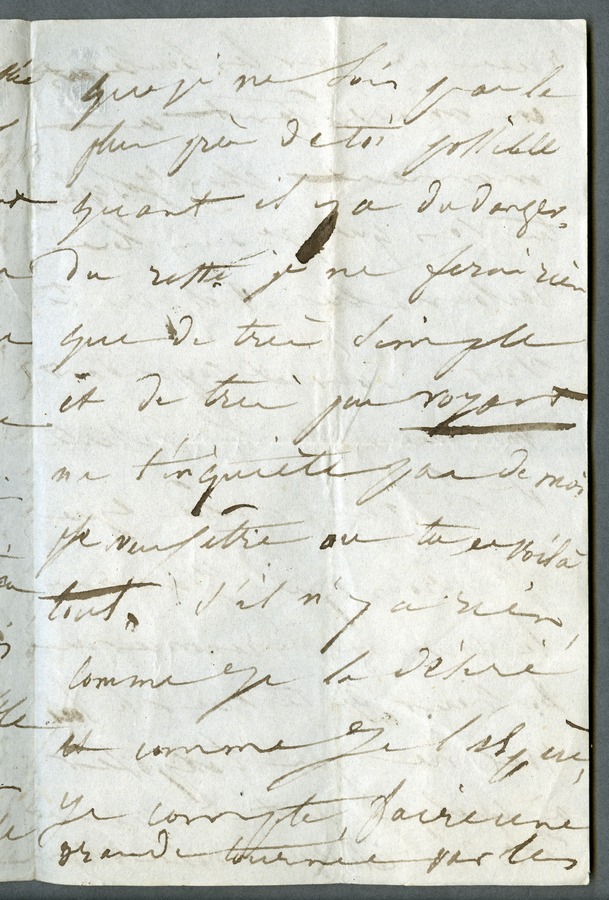 que je ne sois pas le
plus près de toi possible
quant il y a du danger.
Du reste je ne ferai rien
que de très simple
et de très peu voyant
ne t'inquiète pas de moi
je veux être ou tu es voilà
tout. S'il n'y a rien,
comme je le désire
et comme je l'espère,
je compte faire une
grande tournée par les